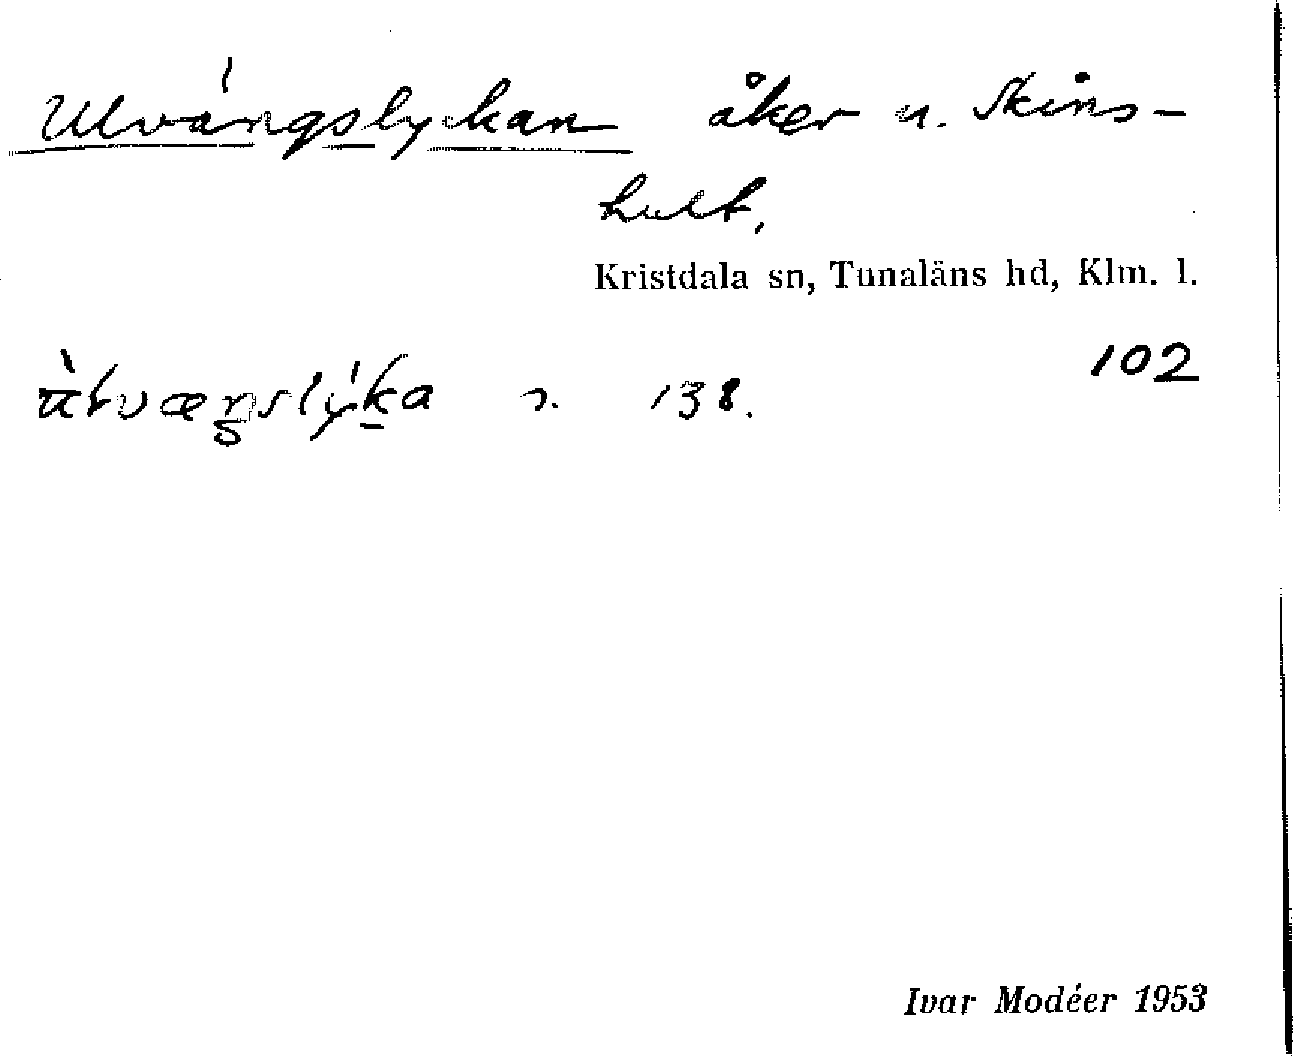 Ulvängslyckan åker n. Skins-
hult.
Kristdala sn, Tunaläns hd, Klm. l.
102
138.
Ivar Modéer 1953